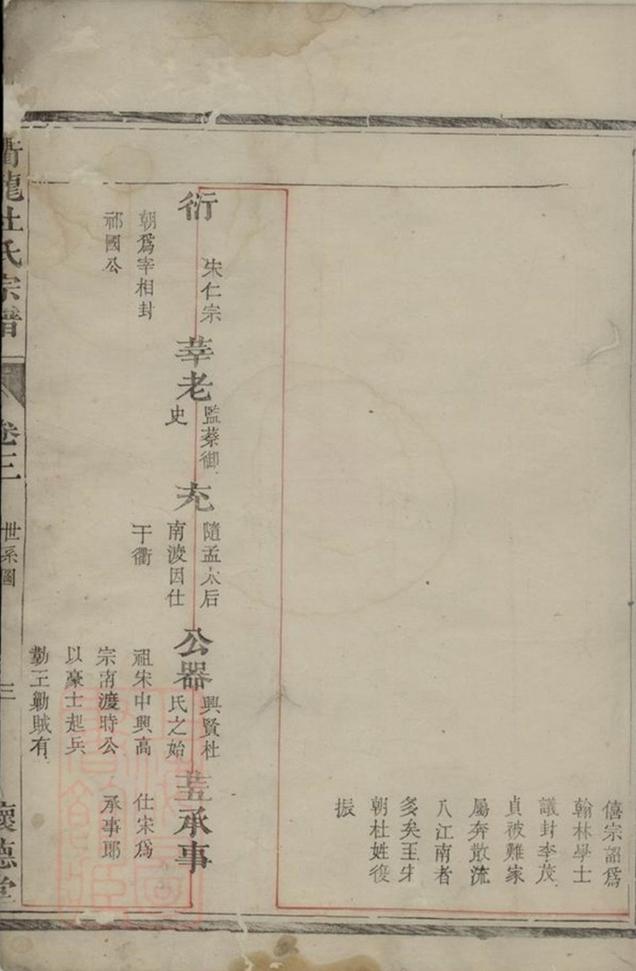 僖宗詔爲
翰林學士
議封李茂
貞被難家
屬奔散流
入江南者
多矣至宋
朝杜姓復
振
衍
宋仁宗
朝爲宰相封
祁國公
莘老
監察御
史
充
隨孟太后
南渡因仕
于衢
公器
興賢杜
氏之始
祖宋中興高
宗南渡時公
以豪士起兵
勤王勦賊有
承事
仕宋爲
承事郎
衢龍杜氏宗譜
卷三
世系圖
三
懷德堂